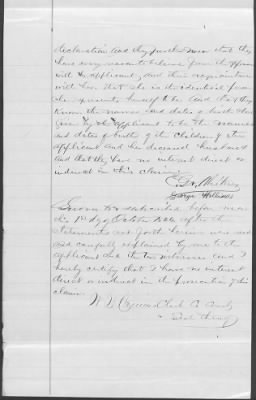 declaration and they further swear that they
have every reason to believe from the appear
with the applicant, and their acquaintance
with her that she is the identical person
she represents herself to be. And that they
know the names and dates of birth
given by the applicant to be the names
and dates of birth of the children of the
applicant and her deceased husband
and that they have no interest direct or
indirect in this claim
George Williams
Sworn to & subscribed before me
the 1st day of October 1886 after the
statements set forth herein was read
and carefully explained by me to the
applicant and the two witnesses. And I
hereby certify that I have no interest
direct or indirect in the prosecution of this
claim
Clerk Co. Court